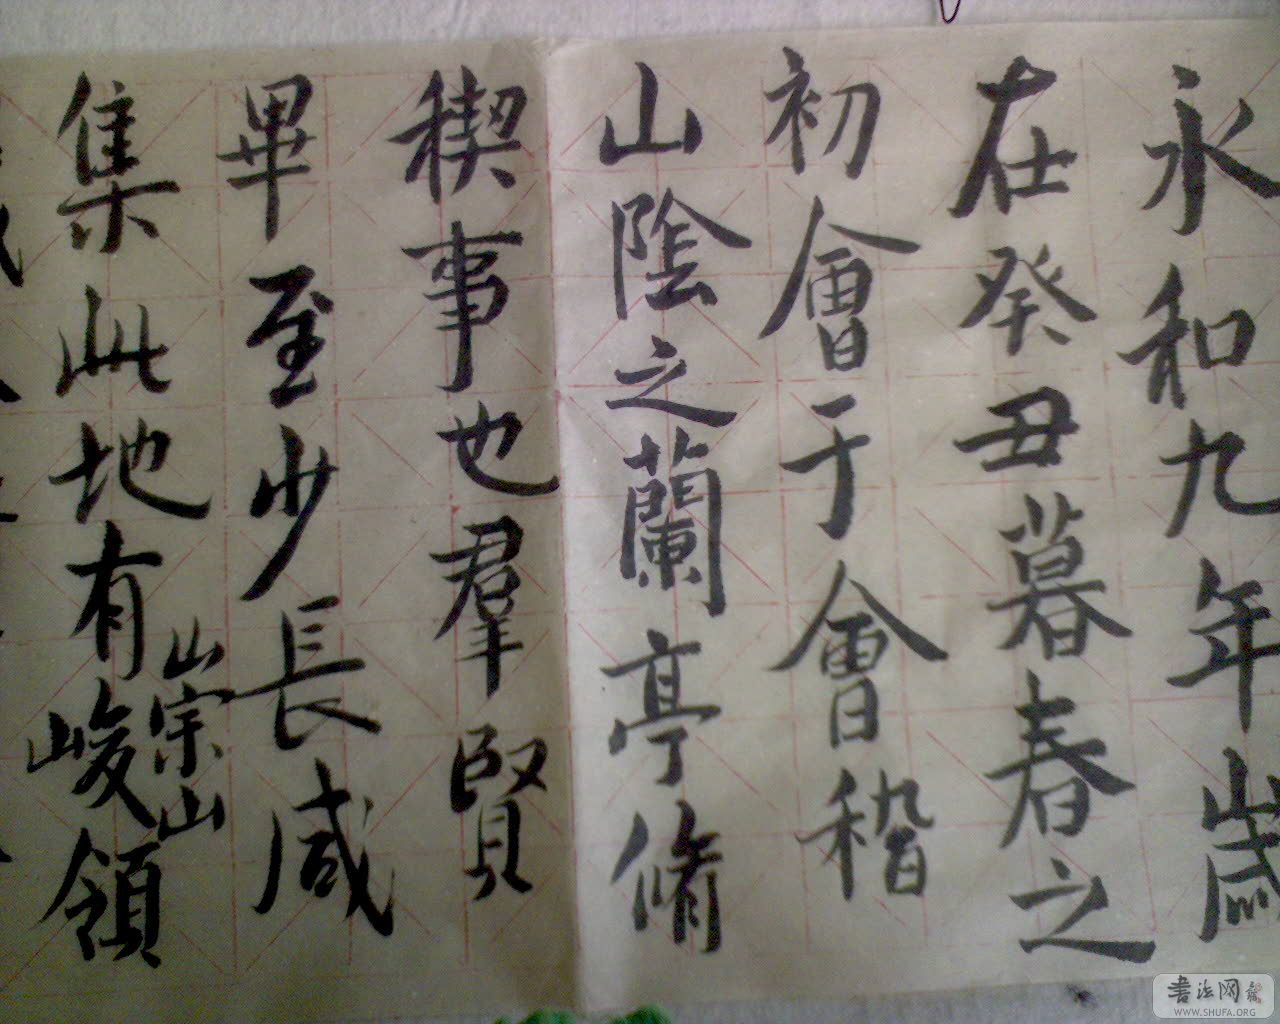 永和九年歲
在癸丑暮春之
初會于會稽
山陰之蘭亭脩
稧事也羣賢
畢至少長咸
集此地有峻領
崇山
書法网
WWW.SHUFA.ORG